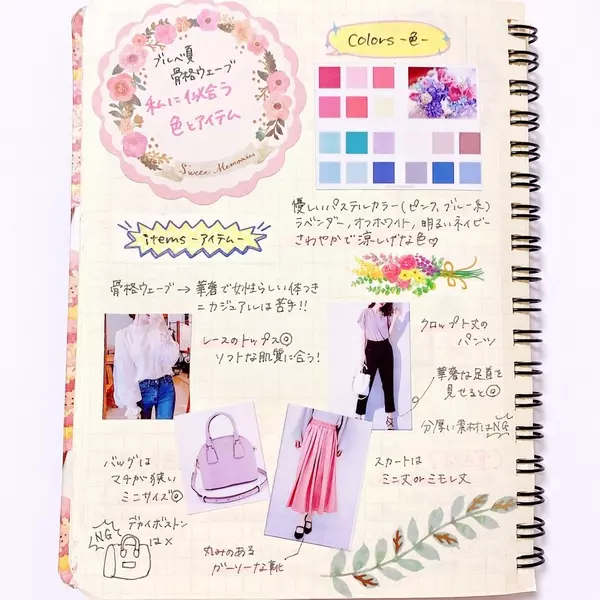 ブルべ夏
骨格ウェーブ
私に似合う
色とアイテム
Sweet Memories
Colors -色-
優しいパステルカラー(ピンク、ブルー系)
ラベンダー,オフホワイト,明るいネイビー
さわやかで涼しげな色♡
items -アイテム-
骨格ウェーブ→華奢で女性らしい体つき
=カジュアルは苦手!!
レースのトップス◎
ソフトな肌質に合う!
クロップト丈の
パンツ
華奢な足首を
見せると◎
分厚い素材はNG
バッグは
マチが狭い
ミニサイズ◎
NG
デカイボストン
は×
スカートは
ミニ丈orミモレ丈
丸みのある
ガーリーな靴